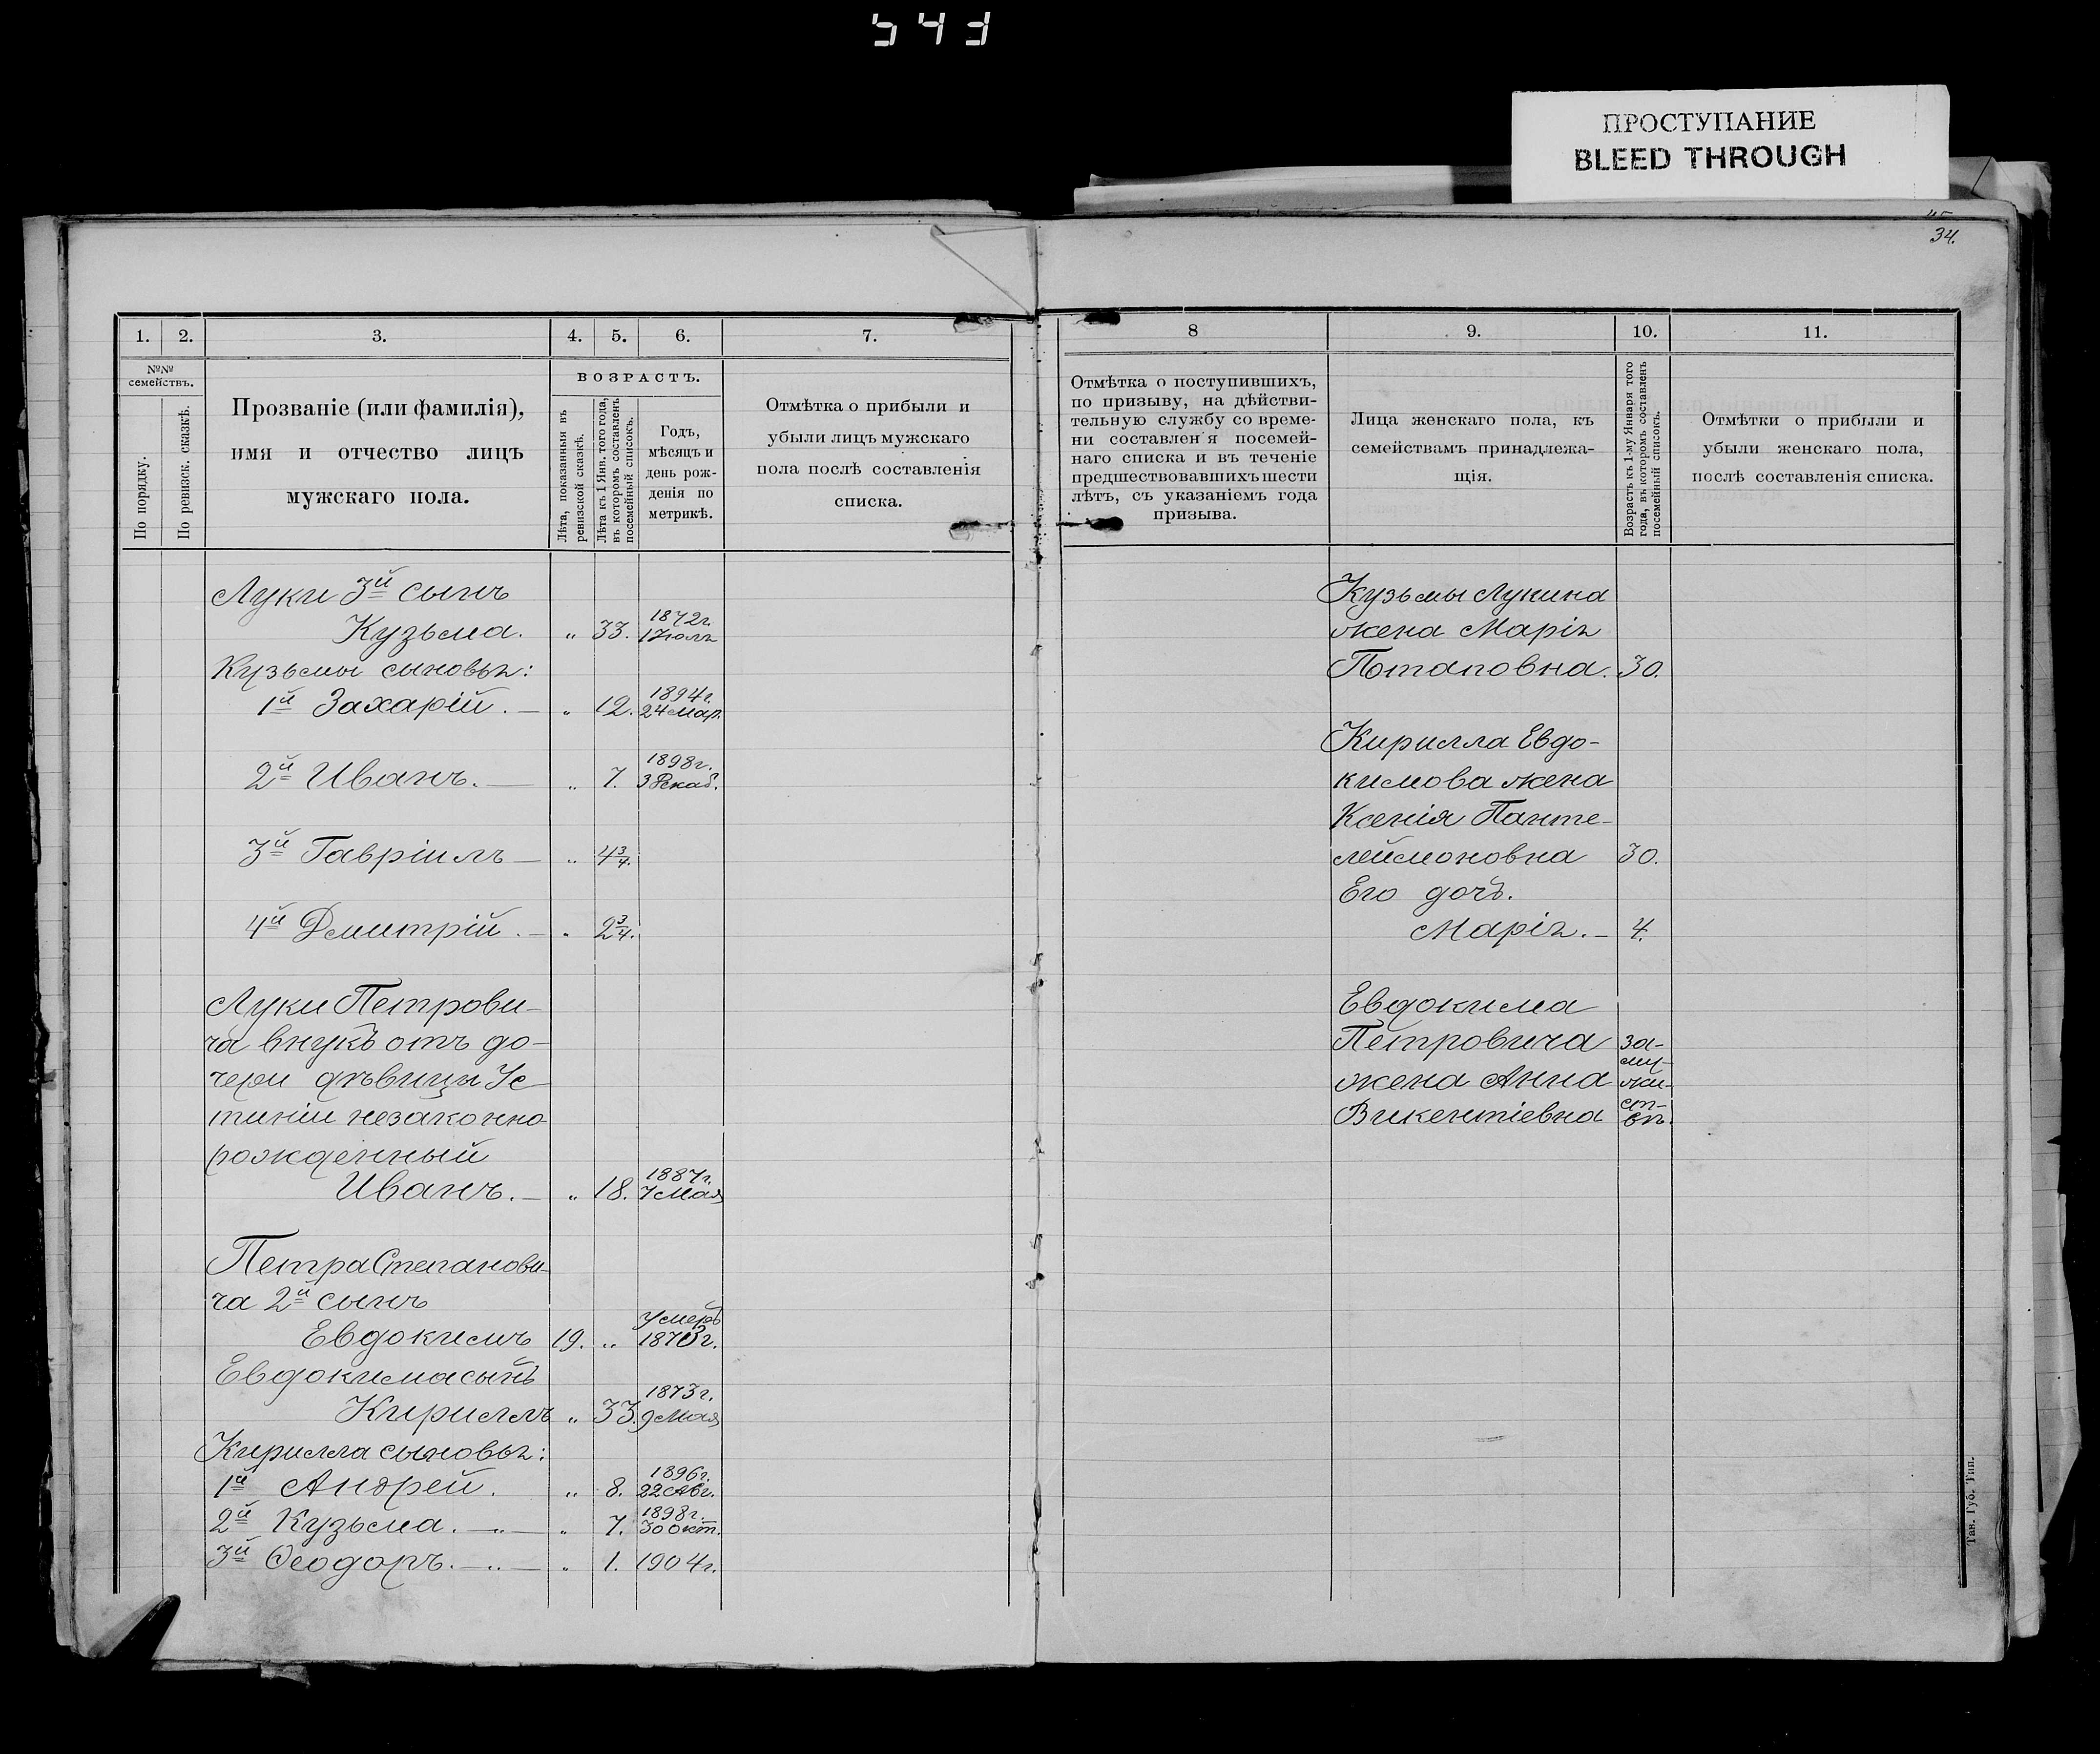 543
ПРОСТУПАНИЕ
BLEED THROUGH
34.
1.
2.
3.
4.
5.
6.
7.
№№
семействъ.
По порядку.
По ревизск. сказкѣ.
Прозваніе (или фамилія),
имя и отчество лицъ
мужскаго пола.
ВОЗРАСТЪ.
Лѣта, показанныя въ
ревизской сказкѣ.
Лѣта къ 1 Янв. того года,
въ которомъ составленъ
посемейный списокъ.
Годъ,
мѣсяцъ и
день рож-
денія по
метрикѣ.
Отмѣтка о прибыли и
убыли лицъ мужскаго
пола послѣ составленія
списка.
Луки 3й сынъ
Кузьма. „ 33. 1872г.
1 Іюля
Кузьмы сыновья:
1й Захарій. — „ 12. 1894г.
24 Мар.
2й Иванъ. — „ 7. 1898г.
3 Декаб.
3й Гавріилъ — „ 4 3/4.
4й Дмитрій. — „ 2 3/4.
Луки Петрови-
ча внукъ отъ до-
чери дѣвицы Ус-
тиніи незаконно
рожденный
Иванъ. — „ 18. 1887г.
7 Мая
Петра Степанови-
ча 2й сынъ
Евдокимъ 19. „ Умеръ
187г.
Евдокима сынъ
Кириллъ „ 33. 1873г.
9 Мая
Кирилла сыновья:
1й Андрей. „ 8. 1896г.
22 Авг.
2й Кузьма. — „ — „ 7. 1898г.
30 Окт.
3й Ѳеодоръ. — „ — „ 1. 1904г.
8
9.
10.
11.
Отмѣтка о поступившихъ,
по призыву, на дѣйстви-
тельную службу со време-
ни составлен я посемей-
наго списка и въ теченіе
предшествовавшихъ шести
лѣтъ, съ указаніемъ года
призыва.
Лица женскаго пола, къ
семействамъ принадлежа-
щія.
Возрастъ къ 1-му Января того
года, въ которомъ составленъ
посемейный списокъ.
Отмѣтки о прибыли и
убыли женскаго пола,
послѣ составленія списка.
Кузьмы Лукина
жена Марія
Потаповна. 30.
Кирилла Евдо-
кимова жена
Ксенія Панте-
леймоновна 30.
Его дочь.
Марія. — 4.
Евдокима
Петровича за-
му-
жена Анна жи-
Викентіевна ст-
вѣ.
Тав. Губ. Тип.